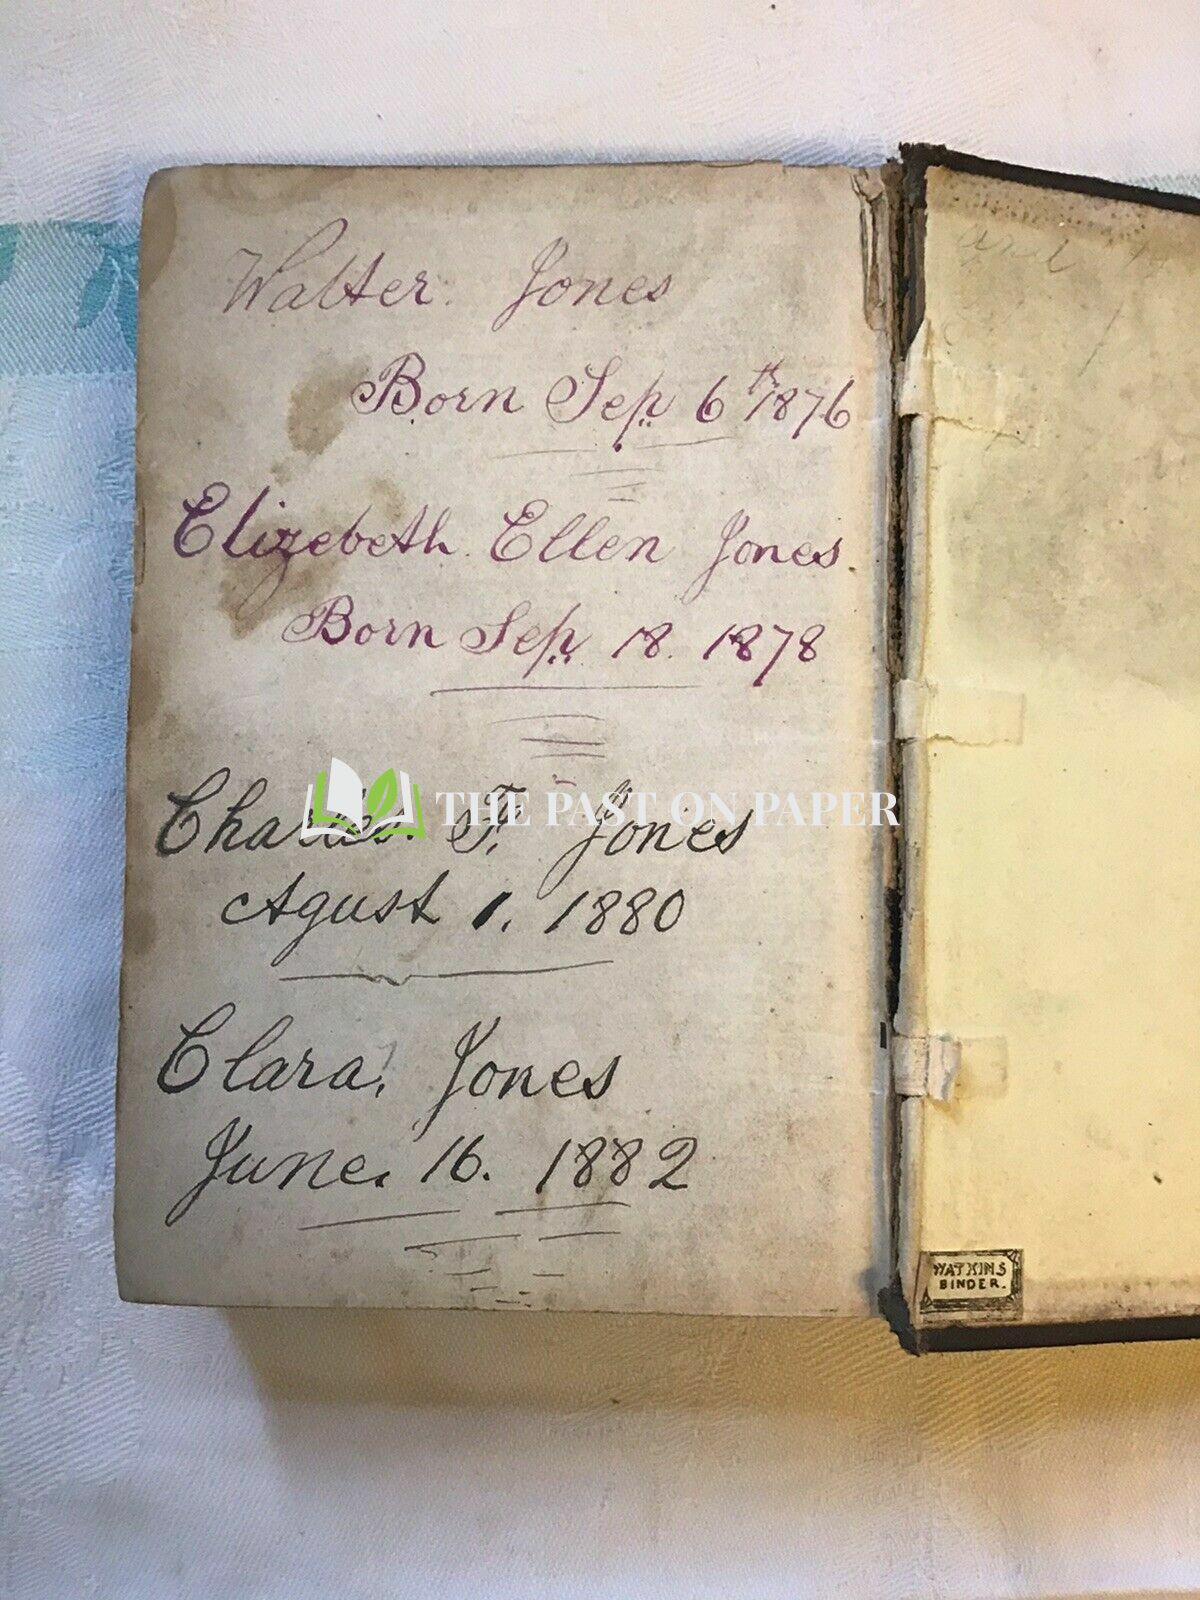 Walter Jones
Born Sep 6th 1876
Elizebeth Ellen Jones
Born Sep 18. 1878
Charles. F. Jones
Agust 1. 1880
Clara, Jones
June. 16. 1882
THE PAST ON PAPER
WATKINS
BINDER.